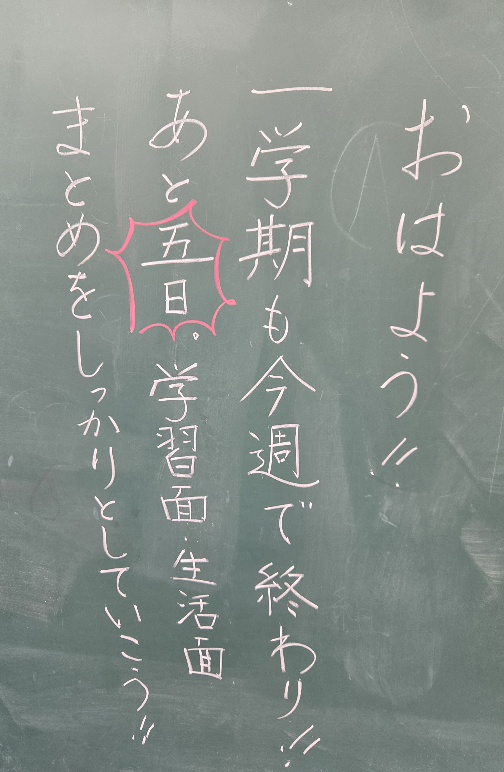 おはよう!!
一学期も今週で終わり!!
あと五日。学習面・生活面
まとめをしっかりとしていこう!!